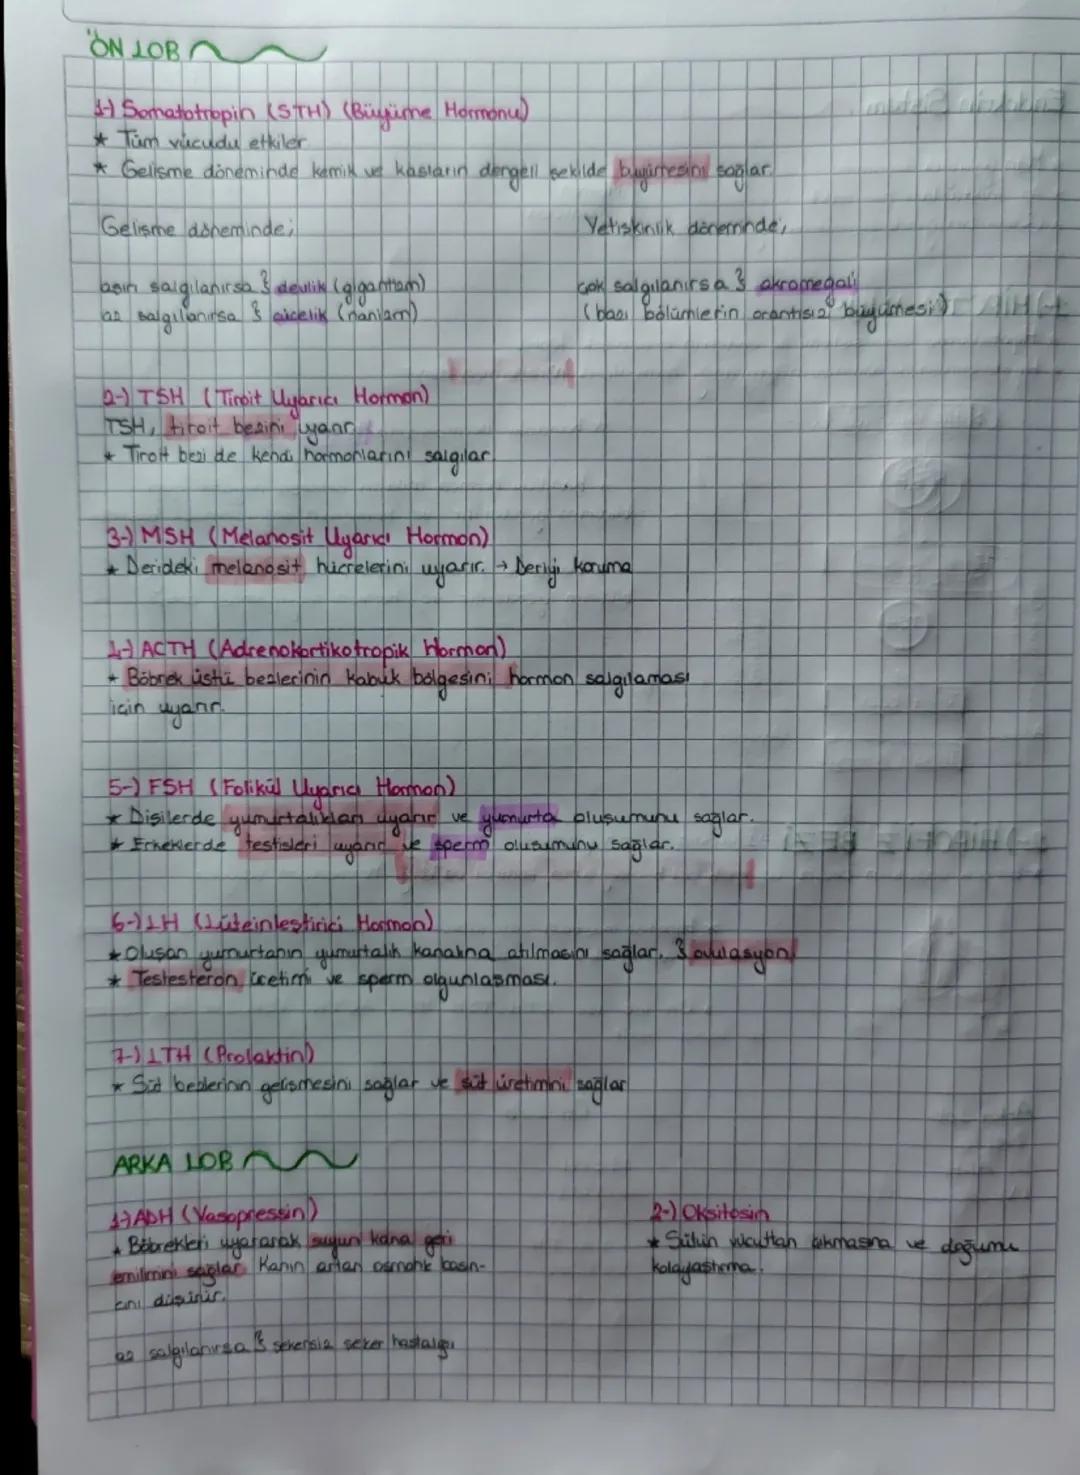 ÖN LOB
1-) Somatotropin (STH) (Büyüme Hormonu)
* Tüm vücudu etkiler
* Gelişme döneminde kemik ve kasların dengeli şekilde büyümesini sağlar.
Gelişme döneminde;
Yetişkinlik döneminde;
aşırı salgılanırsa devlik (gigantizm)
az salgılanırsa cücelik (nanizm)
çok salgılanırsa akromegali
(bazı bölümlerin orantısız büyümesi)
2-) TSH (Tiroit Uyarıcı Hormon)
TSH, tiroit bezini uyarır.
* Tiroit bezi de kendi hormonlarını salgılar.
3-) MSH (Melanosit Uyarıcı Hormon)
* Derideki melanosit hücrelerini uyarır. → Deriyi koruma
4-) ACTH (Adrenokortikotropik Hormon)
* Böbrek üstü bezlerinin kabuk bölgesini hormon salgılaması
için uyarır.
5-) FSH (Folikül Uyarıcı Hormon)
* Dişilerde yumurtalıkları uyarır ve yumurta oluşumunu sağlar.
* Erkeklerde testisleri uyarır ve sperm oluşumunu sağlar.
6-) LH (Lüteinleştirici Hormon)
* Oluşan yumurtanın yumurtalık kanalına atılmasını sağlar. ovulasyon
* Testesteron üretimi ve sperm olgunlaşması.
7-) LTH (Prolaktin)
* Süt bezlerinin gelişmesini sağlar ve süt üretimini sağlar
ARKA LOB
1-) ADH (Vasopressin)
* Böbrekleri uyararak suyun kana geri
emilimini sağlar. Kanın artan osmotik basın-
cını düşürür.
az salgılanırsa şekersiz şeker hastalığı
2-) Oksitosin
* Sütün vücuttan çıkmasına ve doğumu
kolaylaştırma.